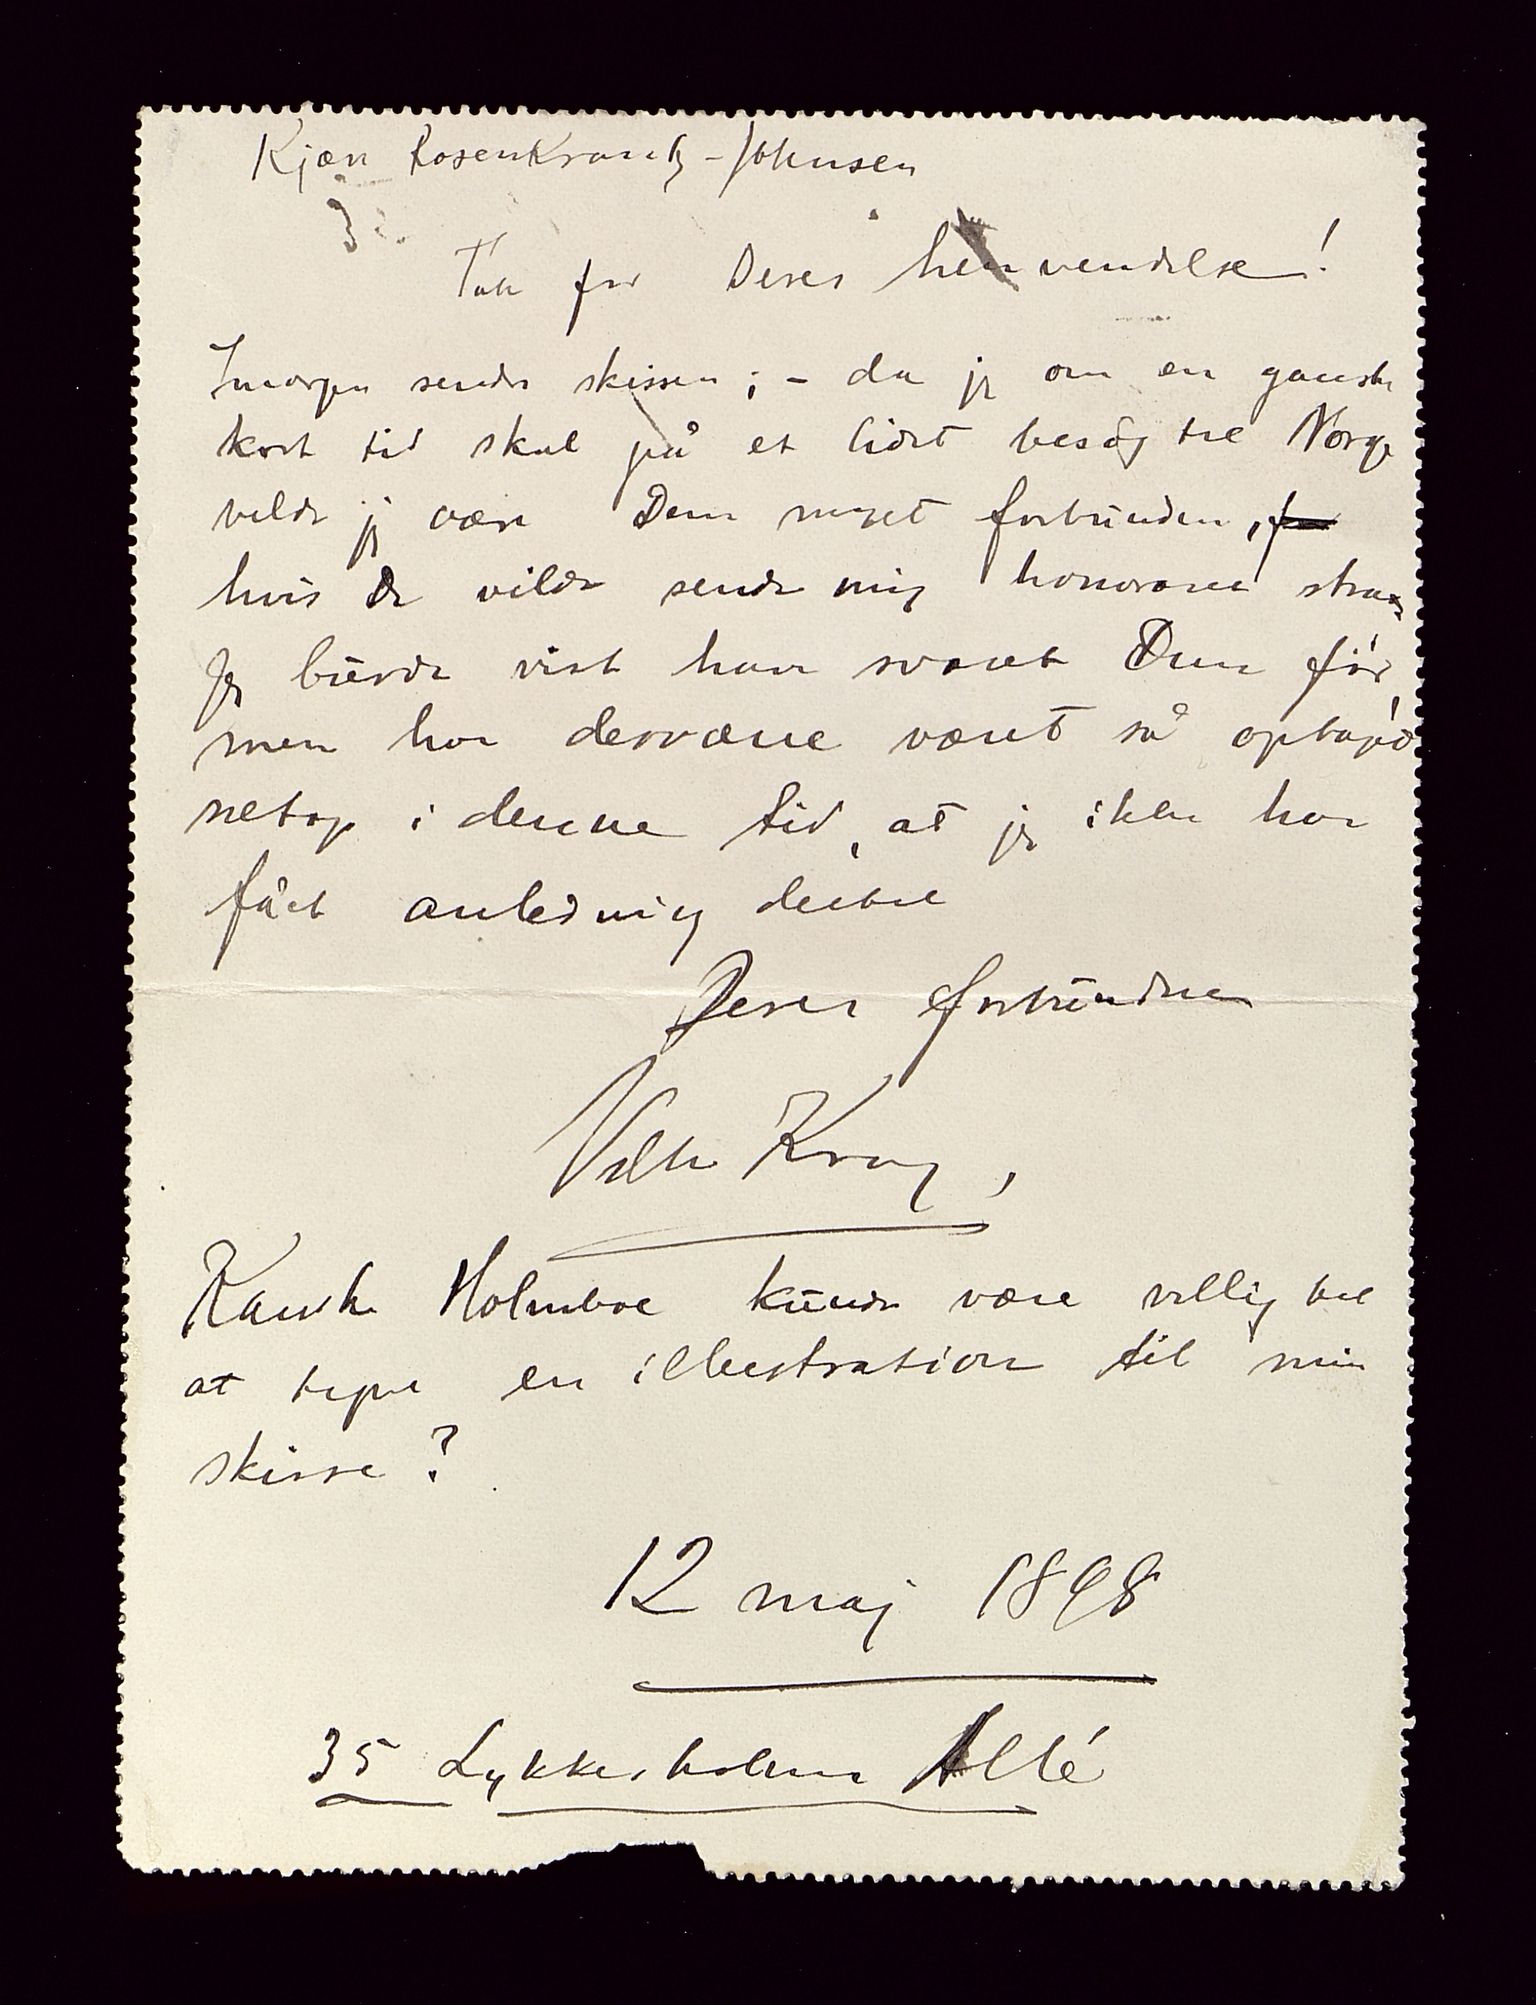 Kjære Rosenkrantz-Johnsen
Tak for Deres henvendelse!
Imorgen sendes skissen; – da jeg om en ganske
kort tid skal på et lidet besøg til Norge
vilde jeg være Dem meget forbunden,
hvis De vilde sende mig honoraret strax
Jeg burde vist have svaret Dem før,
men har desværre været så optaget
netop i denne tid, at jeg ikke har
fået anledning dertil
Deres forbundne
Vilh Krag,
Kanske Holmboe kunde være villig til
at tegne en illustration til min
skisse?
12 maj 1898
35 Lykkesholms Allé